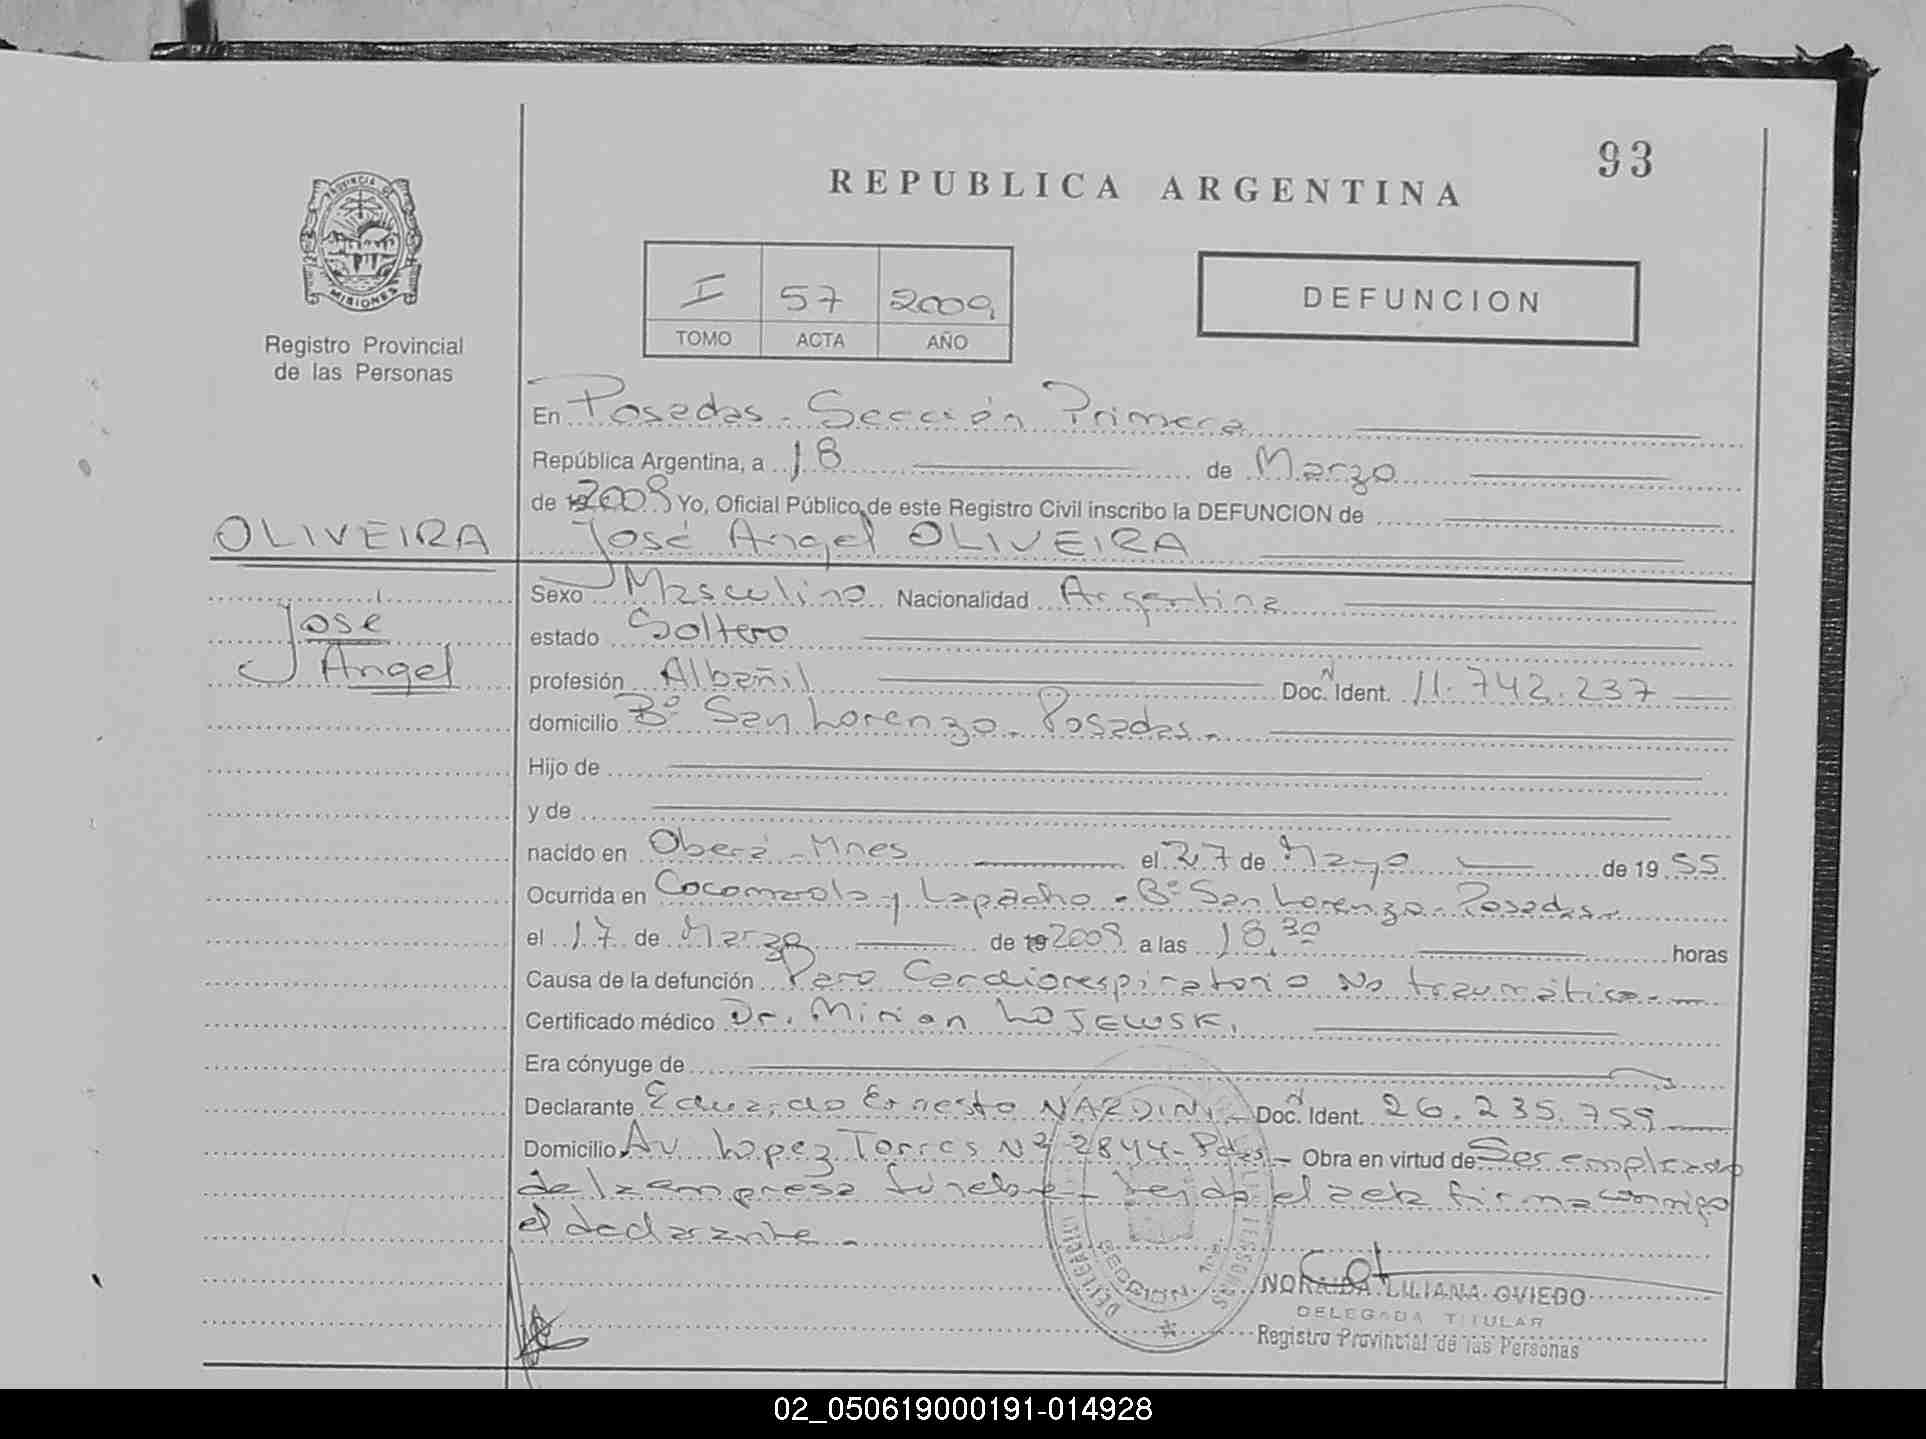 93
REPUBLICA ARGENTINA
PROVINCIA DE
MISIONES
Registro Provincial
de las Personas
I 57 2009
TOMO ACTA AÑO
DEFUNCION
En Posadas - Sección Primera
República Argentina, a 18 de Marzo
de 192009 Yo, Oficial Público de este Registro Civil inscribo la DEFUNCION de
OLIVEIRA José Angel OLIVEIRA
José
Angel
Sexo Masculino Nacionalidad Argentina
estado Soltero
profesión Albañil Doc. N Ident. 11.742.237
domicilio Bº San Lorenzo - Posadas.
Hijo de
y de
nacido en Oberá - Mnes el 27 de Mayo de 1955
Ocurrida en Cocomarola y Lapacho - Bº San Lorenzo - Posadas -
el 17 de Marzo de 192009 a las 18,30 horas
Causa de la defunción Paro Cardiorespiratorio No traumático.-
Certificado médico Dr. Mirian LOJEWSKI
Era cónyuge de
Declarante Eduardo Ernesto NARDINI - Doc. N Ident. 26.235.759
Domicilio Av Lopez Torres Nº 2844 - Pdas - Obra en virtud de Ser empleado
de la empresa fúnebre - Leída el acta firma conmigo
el declarante -
SECCION 1ra
NORAIDA LILIANA OVIEDO
DELEGADA TITULAR
Registro Provincial de las Personas
02_050619000191-014928